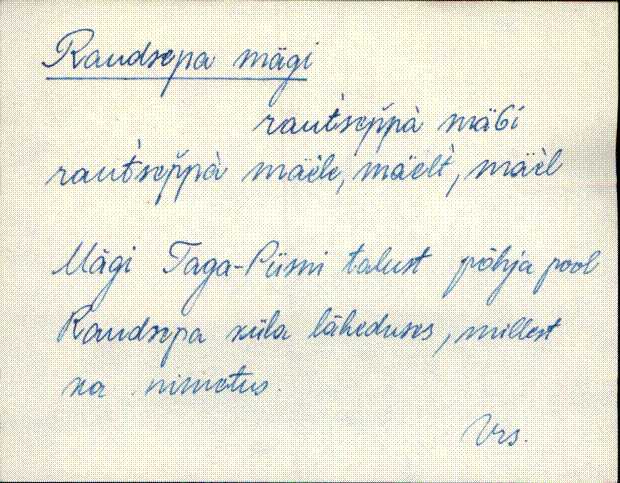 Raudsepa mägi
raut̀sep̆pà mäGi
raut̀sep̆pà mäèle, mäelt̀, mäèl
Mägi Taga-Piisni talust põhja pool
Raudsepa küla läheduses, millest
ka nimetus.
Vrs.